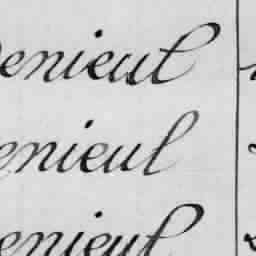 Denieul
enieul
enieul